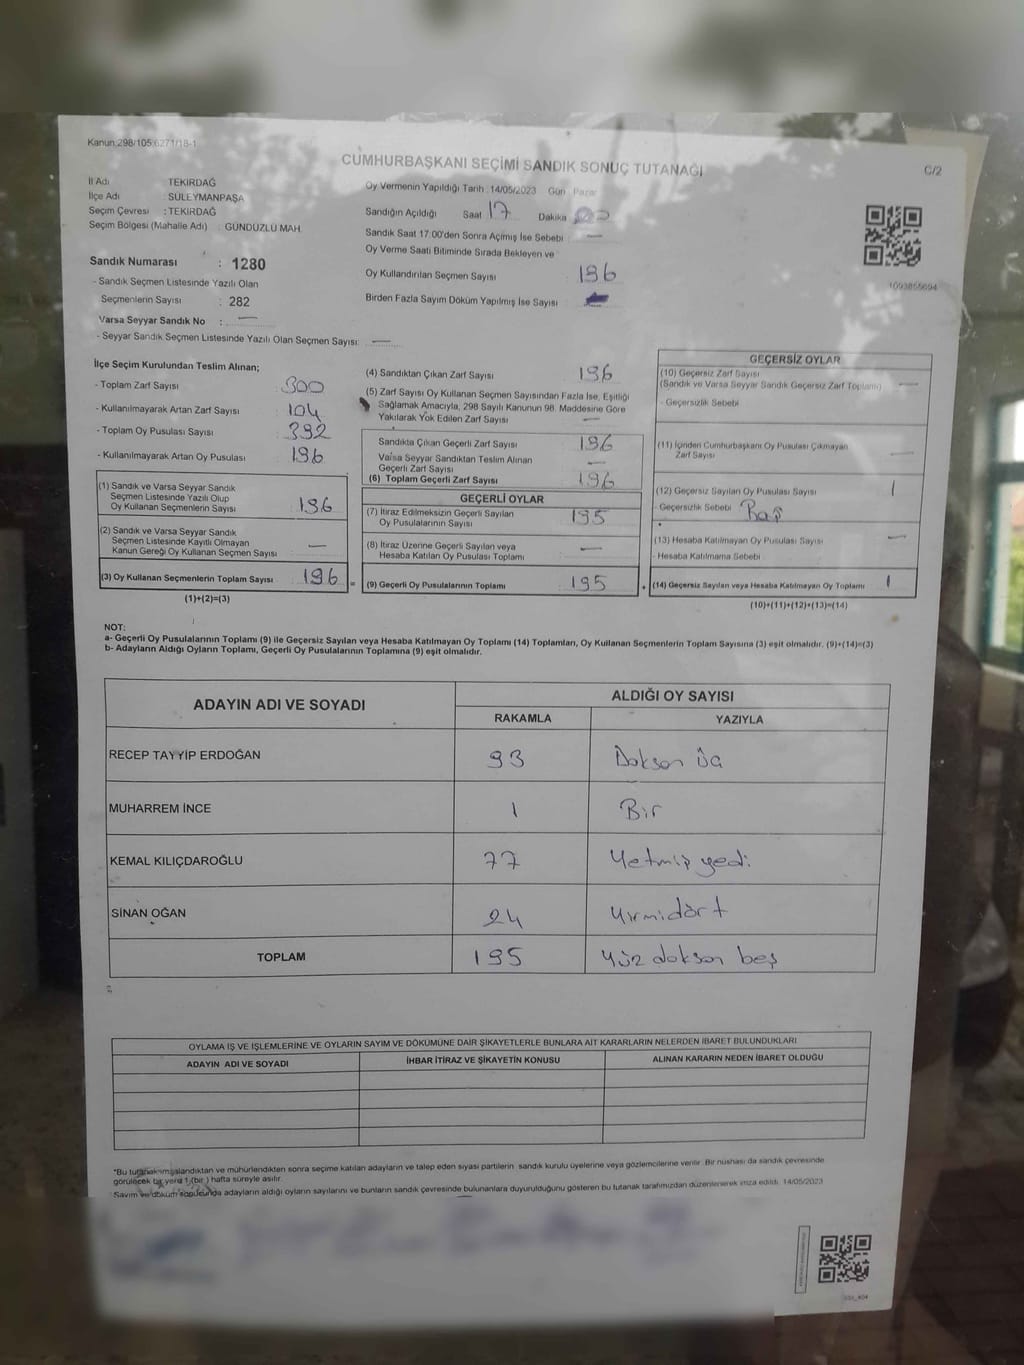 Kanun:298/105,6271/18-1
CUMHURBAŞKANI SEÇİMİ SANDIK SONUÇ TUTANAĞI
C/2
İl Adı TEKİRDAĞ
İlçe Adı : SÜLEYMANPAŞA
Seçim Çevresi : TEKİRDAĞ
Seçim Bölgesi (Mahalle Adı) : GÜNDÜZLÜ MAH.
Sandık Numarası : 1280
- Sandık Seçmen Listesinde Yazılı Olan
Seçmenlerin Sayısı : 282
Varsa Seyyar Sandık No : —
- Seyyar Sandık Seçmen Listesinde Yazılı Olan Seçmen Sayısı: —
Oy Vermenin Yapıldığı Tarih : 14/05/2023 Gün : Pazar
Sandığın Açıldığı Saat 17 Dakika
Sandık Saat 17:00'den Sonra Açılmış İse Sebebi : —
Oy Verme Saati Bitiminde Sırada Bekleyen ve
Oy Kullandırılan Seçmen Sayısı 196
Birden Fazla Sayım Döküm Yapılmış İse Sayısı
1093855694
İlçe Seçim Kurulundan Teslim Alınan;
- Toplam Zarf Sayısı 300
- Kullanılmayarak Artan Zarf Sayısı 104
- Toplam Oy Pusulası Sayısı 392
- Kullanılmayarak Artan Oy Pusulası 196
(1) Sandık ve Varsa Seyyar Sandık
Seçmen Listesinde Yazılı Olup
Oy Kullanan Seçmenlerin Sayısı 196
(2) Sandık ve Varsa Seyyar Sandık
Seçmen Listesinde Kayıtlı Olmayan
Kanun Gereği Oy Kullanan Seçmen Sayısı —
(3) Oy Kullanan Seçmenlerin Toplam Sayısı 196
(1)+(2)=(3)
(4) Sandıktan Çıkan Zarf Sayısı 196
(5) Zarf Sayısı Oy Kullanan Seçmen Sayısından Fazla İse, Eşitliği
Sağlamak Amacıyla, 298 Sayılı Kanunun 98. Maddesine Göre
Yakılarak Yok Edilen Zarf Sayısı —
Sandıkta Çıkan Geçerli Zarf Sayısı 196
Varsa Seyyar Sandıktan Teslim Alınan
Geçerli Zarf Sayısı —
(6) Toplam Geçerli Zarf Sayısı 196
GEÇERLİ OYLAR
(7) İtiraz Edilmeksizin Geçerli Sayılan
Oy Pusulalarının Sayısı 195
(8) İtiraz Üzerine Geçerli Sayılan veya
Hesaba Katılan Oy Pusulası Toplamı —
= (9) Geçerli Oy Pusulalarının Toplamı 195
GEÇERSİZ OYLAR
(10) Geçersiz Zarf Sayısı
(Sandık ve Varsa Seyyar Sandık Geçersiz Zarf Toplamı) —
- Geçersizlik Sebebi
(11) İçinden Cumhurbaşkanı Oy Pusulası Çıkmayan
Zarf Sayısı —
(12) Geçersiz Sayılan Oy Pusulası Sayısı 1
- Geçersizlik Sebebi Boş
(13) Hesaba Katılmayan Oy Pusulası Sayısı —
- Hesaba Katılmama Sebebi
+ (14) Geçersiz Sayılan veya Hesaba Katılmayan Oy Toplamı 1
(10)+(11)+(12)+(13)=(14)
NOT:
a- Geçerli Oy Pusulalarının Toplamı (9) ile Geçersiz Sayılan veya Hesaba Katılmayan Oy Toplamı (14) Toplamları, Oy Kullanan Seçmenlerin Toplam Sayısına (3) eşit olmalıdır. (9)+(14)=(3)
b- Adayların Aldığı Oyların Toplamı, Geçerli Oy Pusulalarının Toplamına (9) eşit olmalıdır.
ADAYIN ADI VE SOYADI ALDIĞI OY SAYISI
RAKAMLA YAZIYLA
RECEP TAYYİP ERDOĞAN 93 Doksan üç
MUHARREM İNCE 1 Bir
KEMAL KILIÇDAROĞLU 77 Yetmiş yedi
SİNAN OĞAN 24 Yirmidört
TOPLAM 195 Yüz doksan beş
OYLAMA İŞ VE İŞLEMLERİNE VE OYLARIN SAYIM VE DÖKÜMÜNE DAİR ŞİKAYETLERLE BUNLARA AİT KARARLARIN NELERDEN İBARET BULUNDUKLARI
ADAYIN ADI VE SOYADI İHBAR İTİRAZ VE ŞİKAYETİN KONUSU ALINAN KARARIN NEDEN İBARET OLDUĞU
*Bu tutanak imzalandıktan ve mühürlendikten sonra seçime katılan adayların ve talep eden siyasi partilerin sandık kurulu üyelerine veya gözlemcilerine verilir. Bir nüshası da sandık çevresinde
görülecek bir yere 1 (bir) hafta süreyle asılır.
Sayım ve döküm sonucunda adayların aldığı oyların sayılarını ve bunların sandık çevresinde bulunanlara duyurulduğunu gösteren bu tutanak tarafımızdan düzenlenerek imza edildi. 14/05/2023